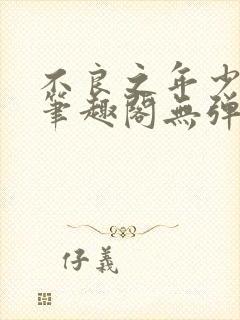 不良之年少
筆趣閣無弹
仔義